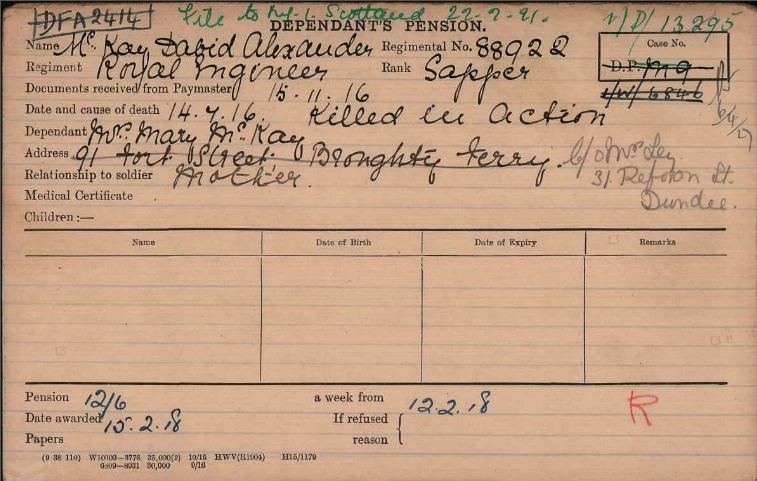 DFA 2414 File to M.1. Scotland 22-2-21. V/P/13295
DEPENDANT'S PENSION.
Name Mc. Kay David Alexander Regimental No. 88922
Case No.
Regiment Royal Engineer Rank Sapper
D.P. M 9
Documents received from Paymaster 15.11.16
/W/6846
Date and cause of death 14.7.16. Killed in action
Dependant Mrs. Mary Mc. Kay
Address 91 Fort Street Broughty Ferry. c/o Mrs Ley
31. Reform St.
Dundee.
Relationship to soldier Mother.
Medical Certificate
Children :—
Name Date of Birth Date of Expiry Remarks
Pension 12/6 a week from 12.2.18 R
Date awarded 15.2.18 If refused
Papers reason
(9 38 110) W10809—3776 35,000(2) 10/15 HWV(R1904) H15/1179
6809—8931 30,000 9/16